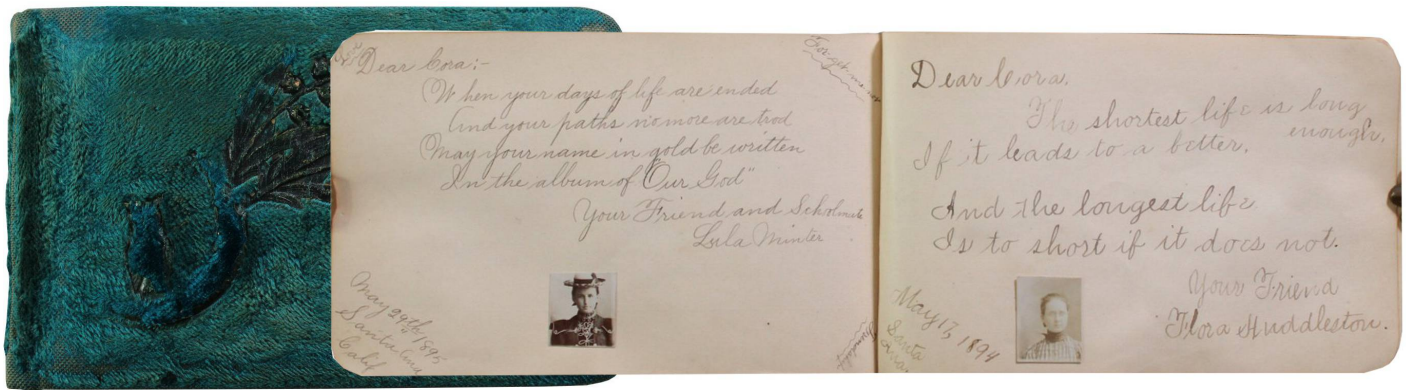 Dear Cora:-
When your days of life are ended
And your paths no more are trod
May your name in gold be written
In the album of "Our God"
Your Friend and Schoolmate
Lula Minter
May 29th, 1895,
Santa Ana
Calif
Forget me not
Dear Cora.
The shortest life is long
enough,
If it leads to a better,
And the longest life
Is to short if it does not.
Your Friend
Flora Huddleston.
May 17, 1894
Santa
Ana